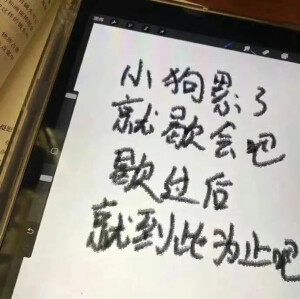 小狗累了
就歇会吧
歇过后
就到此为止吧